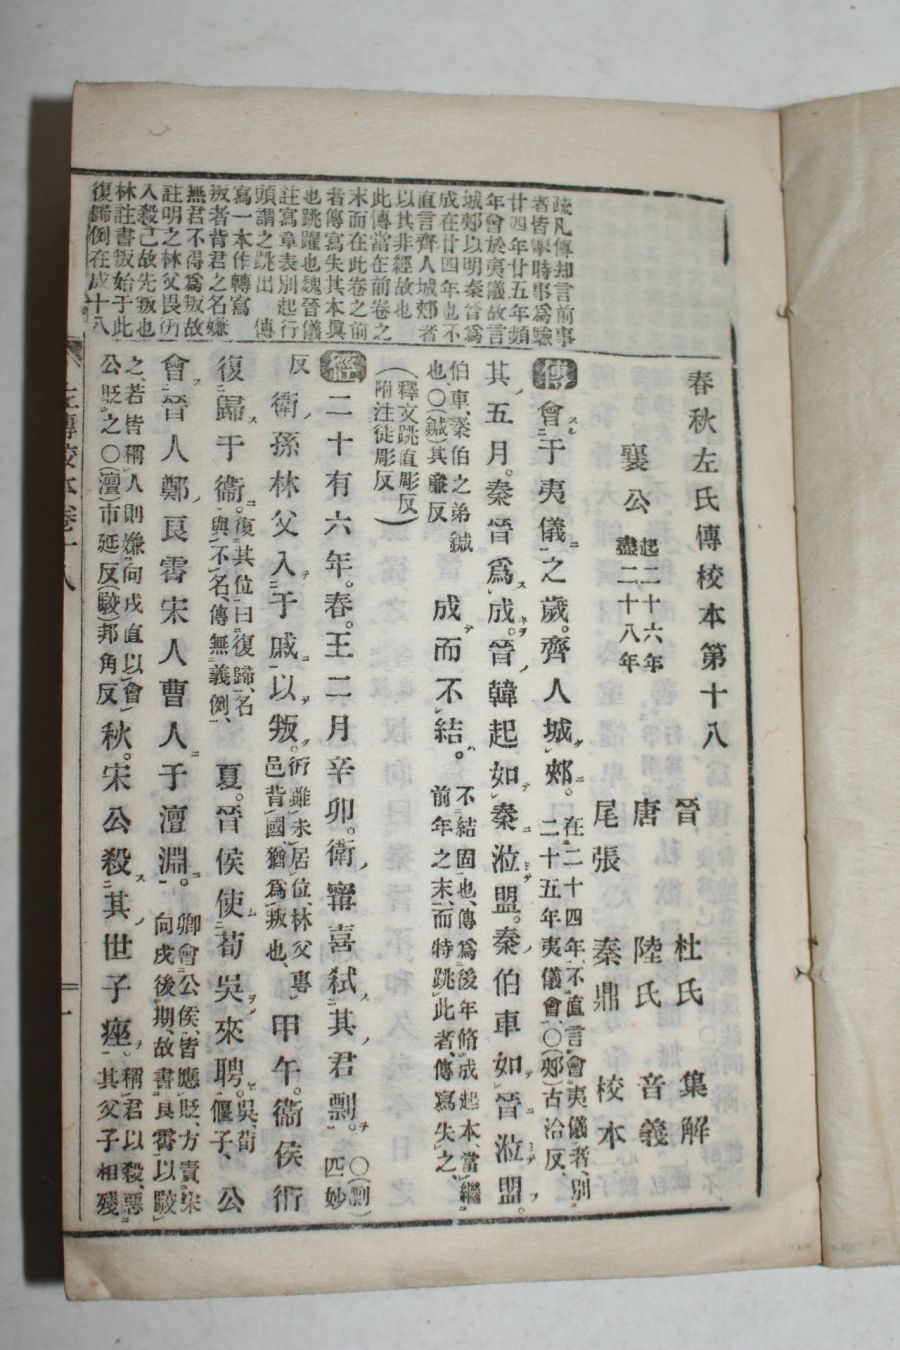 疏凡傳却言前事
者皆擧時事爲驗
廿四年廿五年頻
年會於夷議故言
城郟以明秦晉爲
成在廿四年也不
直言齊人城郟者
以其非經故也
此傳當在前卷之
末而在此卷之前
者傳寫失其本眞
也跳躍也魏晉儀
註寫章表別起行
頭謂之跳出 傳
寫一本作轉寫
叛者背君之名嫌
無君不得爲叛故
註明之林父畏
入殺己故先叛也
林註書叛始于此
復歸倒在成十八
春秋左氏傳校本第十八
襄公 起二十六年 盡二十八年
晉 杜氏 集解
唐 陸氏 音義
尾張 秦鼎 校本
傳會于夷儀之歲。齊人城郟。在二十四年、不直言會夷儀者、別二十五年夷儀會、○(郟)古洽反、
其五月。秦晉爲成。晉韓起如秦涖盟。秦伯車如晉涖盟。
伯車、秦伯之弟鍼也○(鍼)其廉反 成而不結。不結固也、傳爲後年脩成起本、當繼前年之末、而特跳此者、傳寫失之、
(釋文跳直彫反)附注徒彫反)
經二十有六年。春。王二月辛卯。衛甯喜弒其君剽。○(剽)匹妙
反 衛孫林父入于戚以叛。衎雖未居位、林父專邑背國猶爲叛也、 甲午。衛侯衎
復歸于衞。復其位曰復歸、名與不名、傳無義例、 夏。晉侯使荀吳來聘。吳、荀偃子、 公
會晉人鄭良霄宋人曹人于澶淵。卿會公侯、皆應貶、方責宋向戌後期、故書良霄以駮
之、若皆稱人則嫌向戌直以會公貶之○(澶)市延反(駮)邦角反 秋。宋公殺其世子痤。稱君以殺、惡其父子相殘
左傳校本卷十八
一